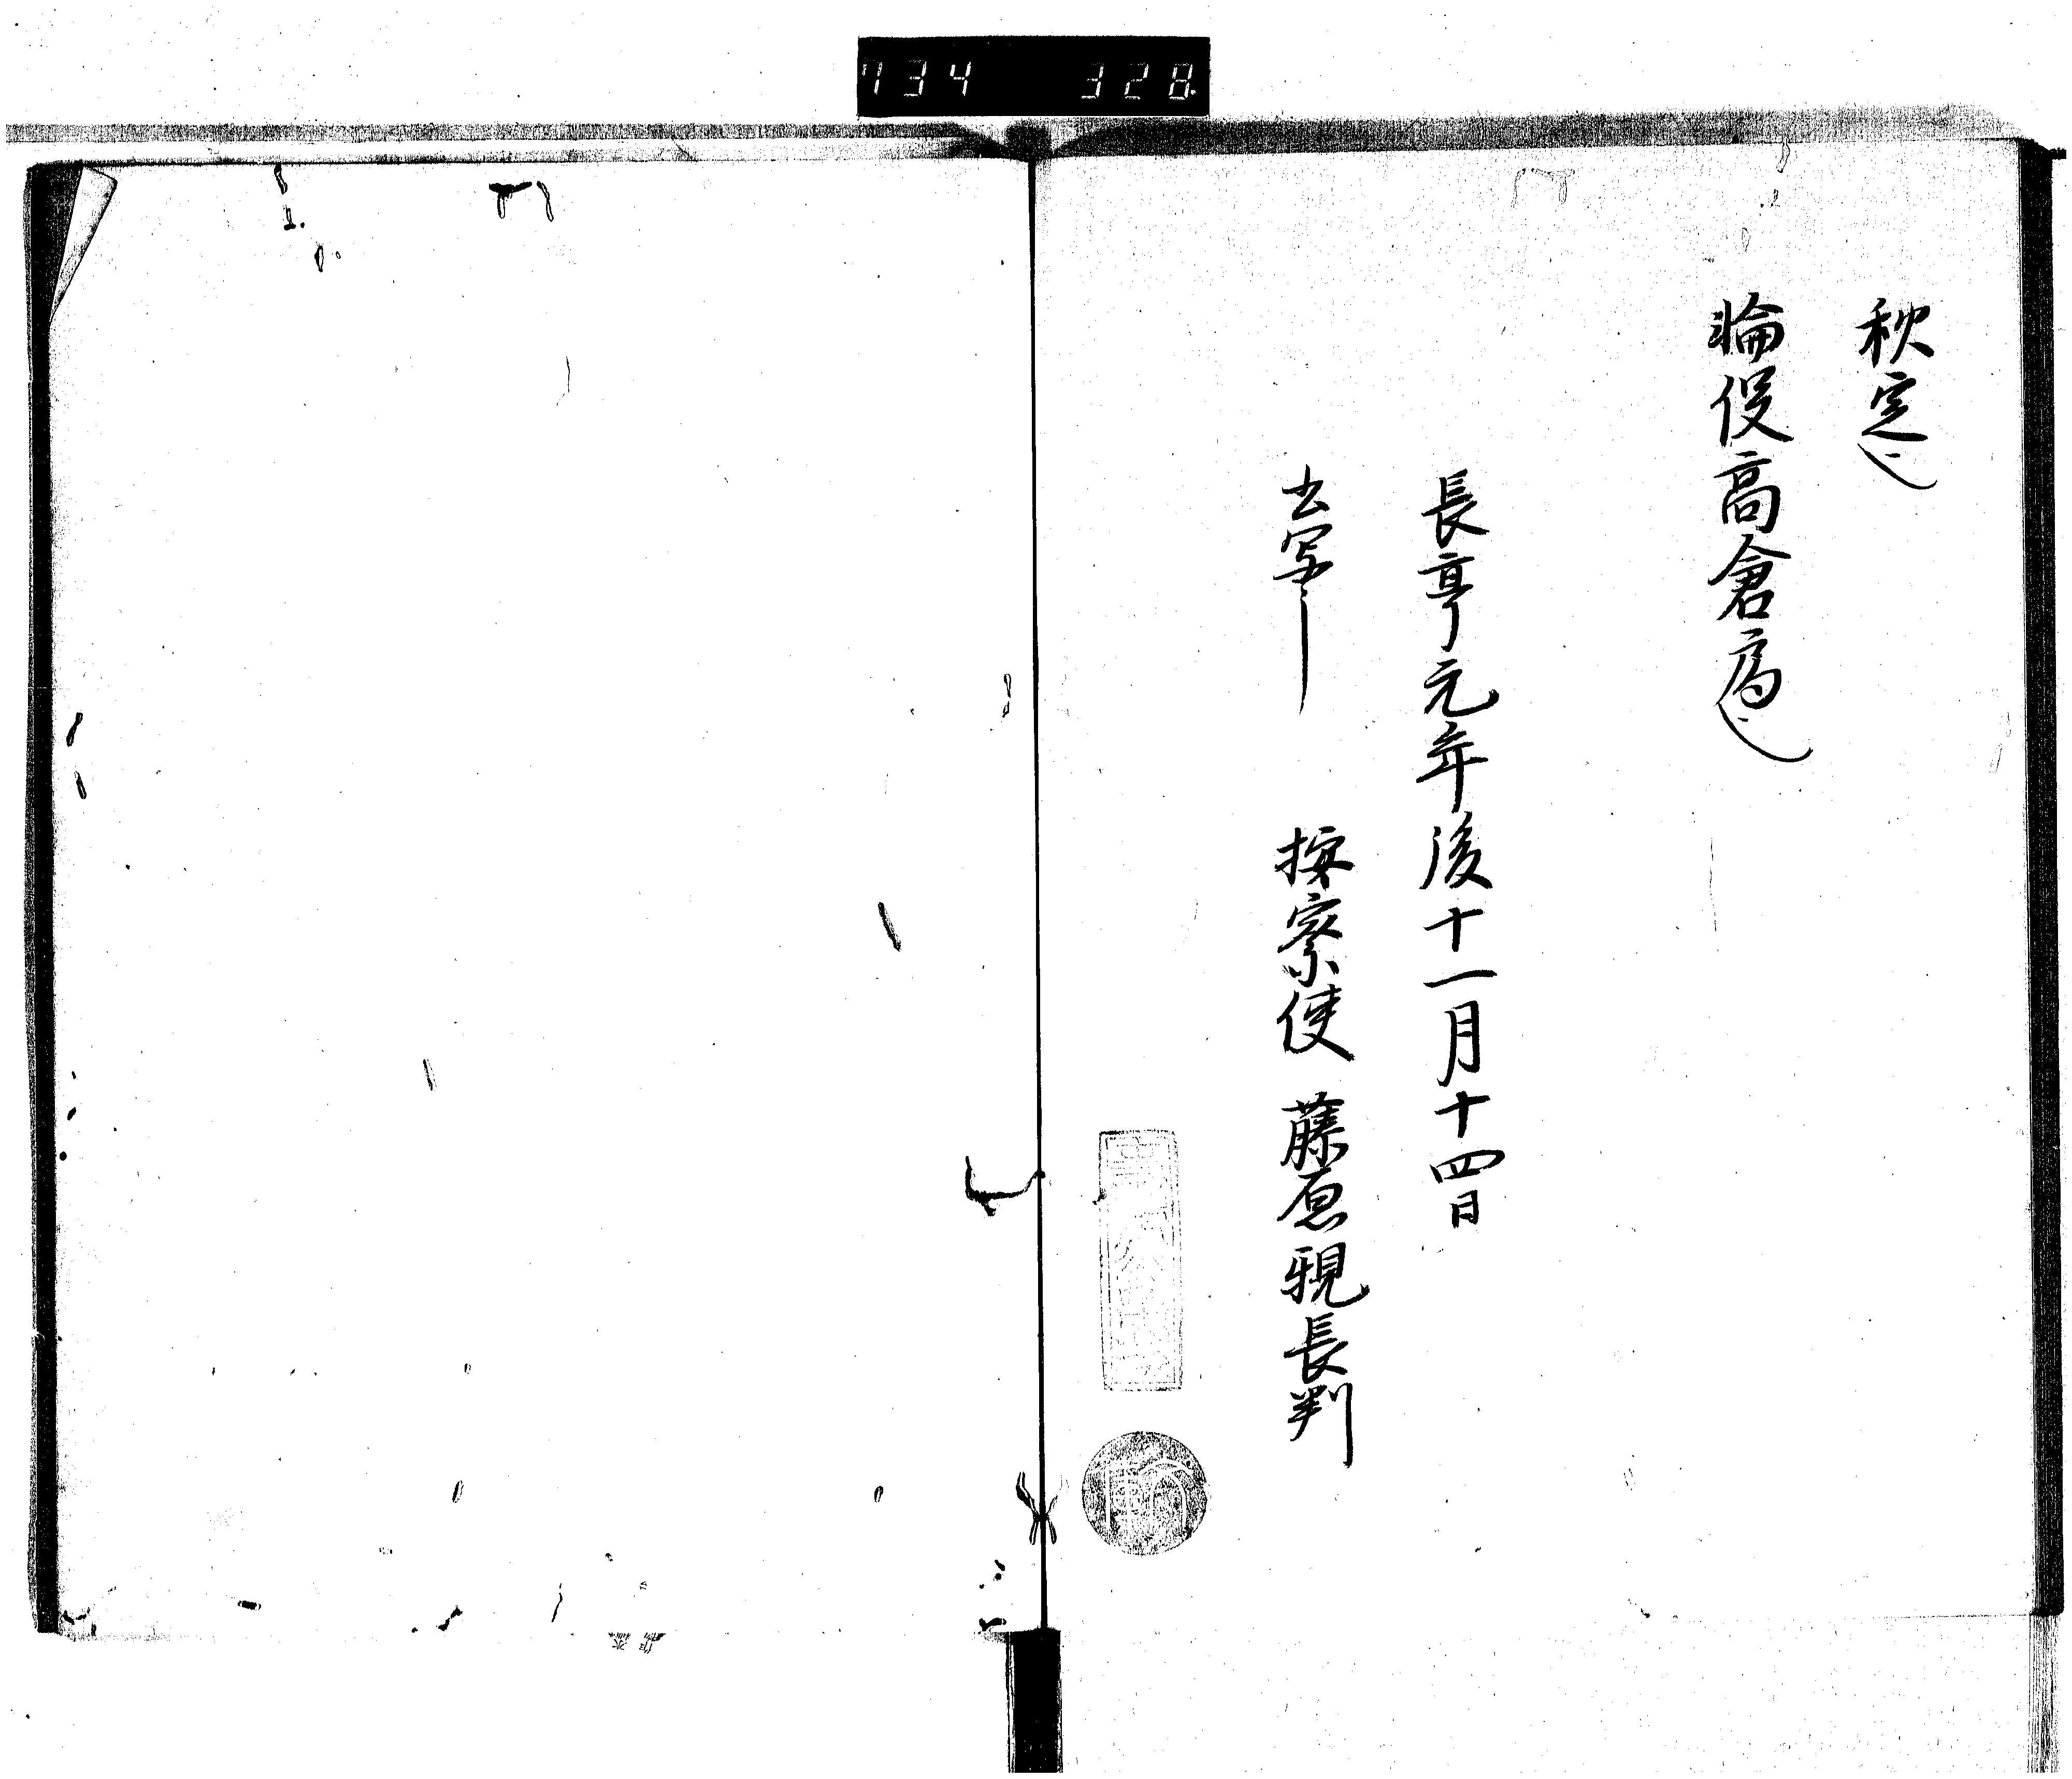 734 328
秋定
輪役高倉為
長享元年後十一月十四日
書写
按察使 藤原親長判